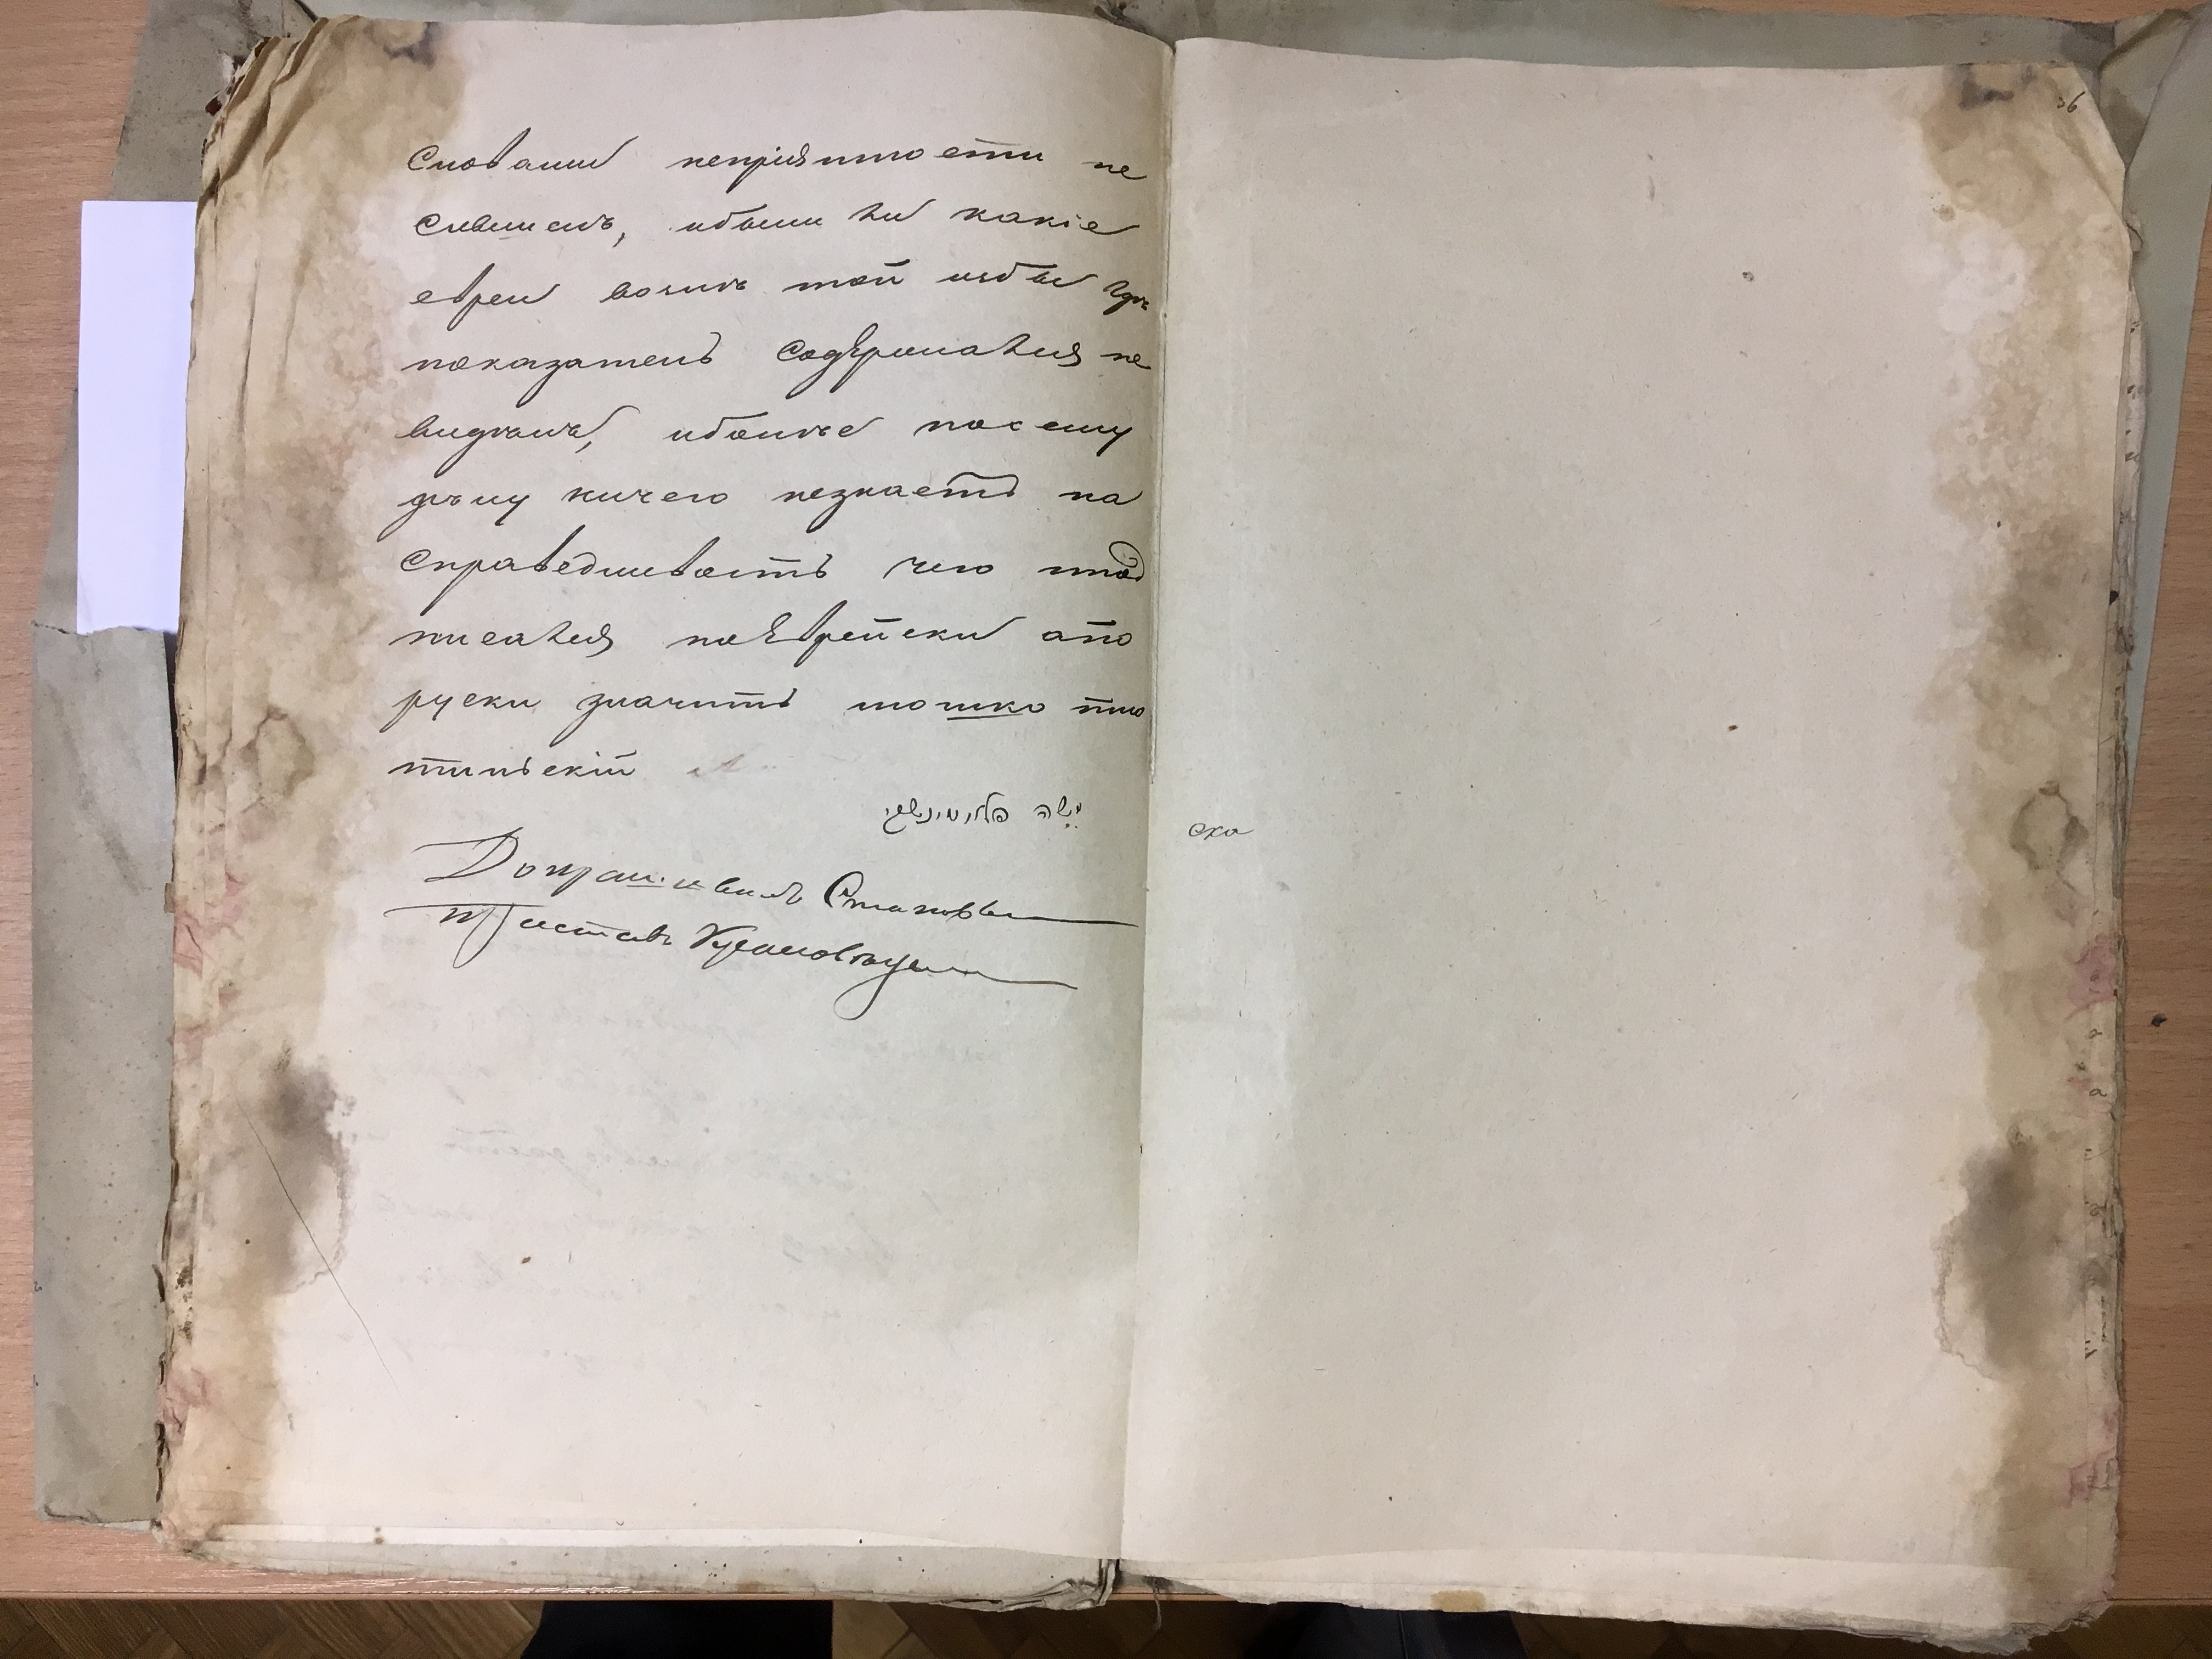 36
Словами непріятности не
Слышелъ, ибыли ли какіе
евреи возлѣ той избы гдѣ
показатель Содержался не
видѣлъ, иболѣе посему
дѣлу ничего незнаетъ на
Справедливость чего под
писался поЕврейски апо
руски значитъ мошко пло
тильскій
Допрашивалъ
Приставъ